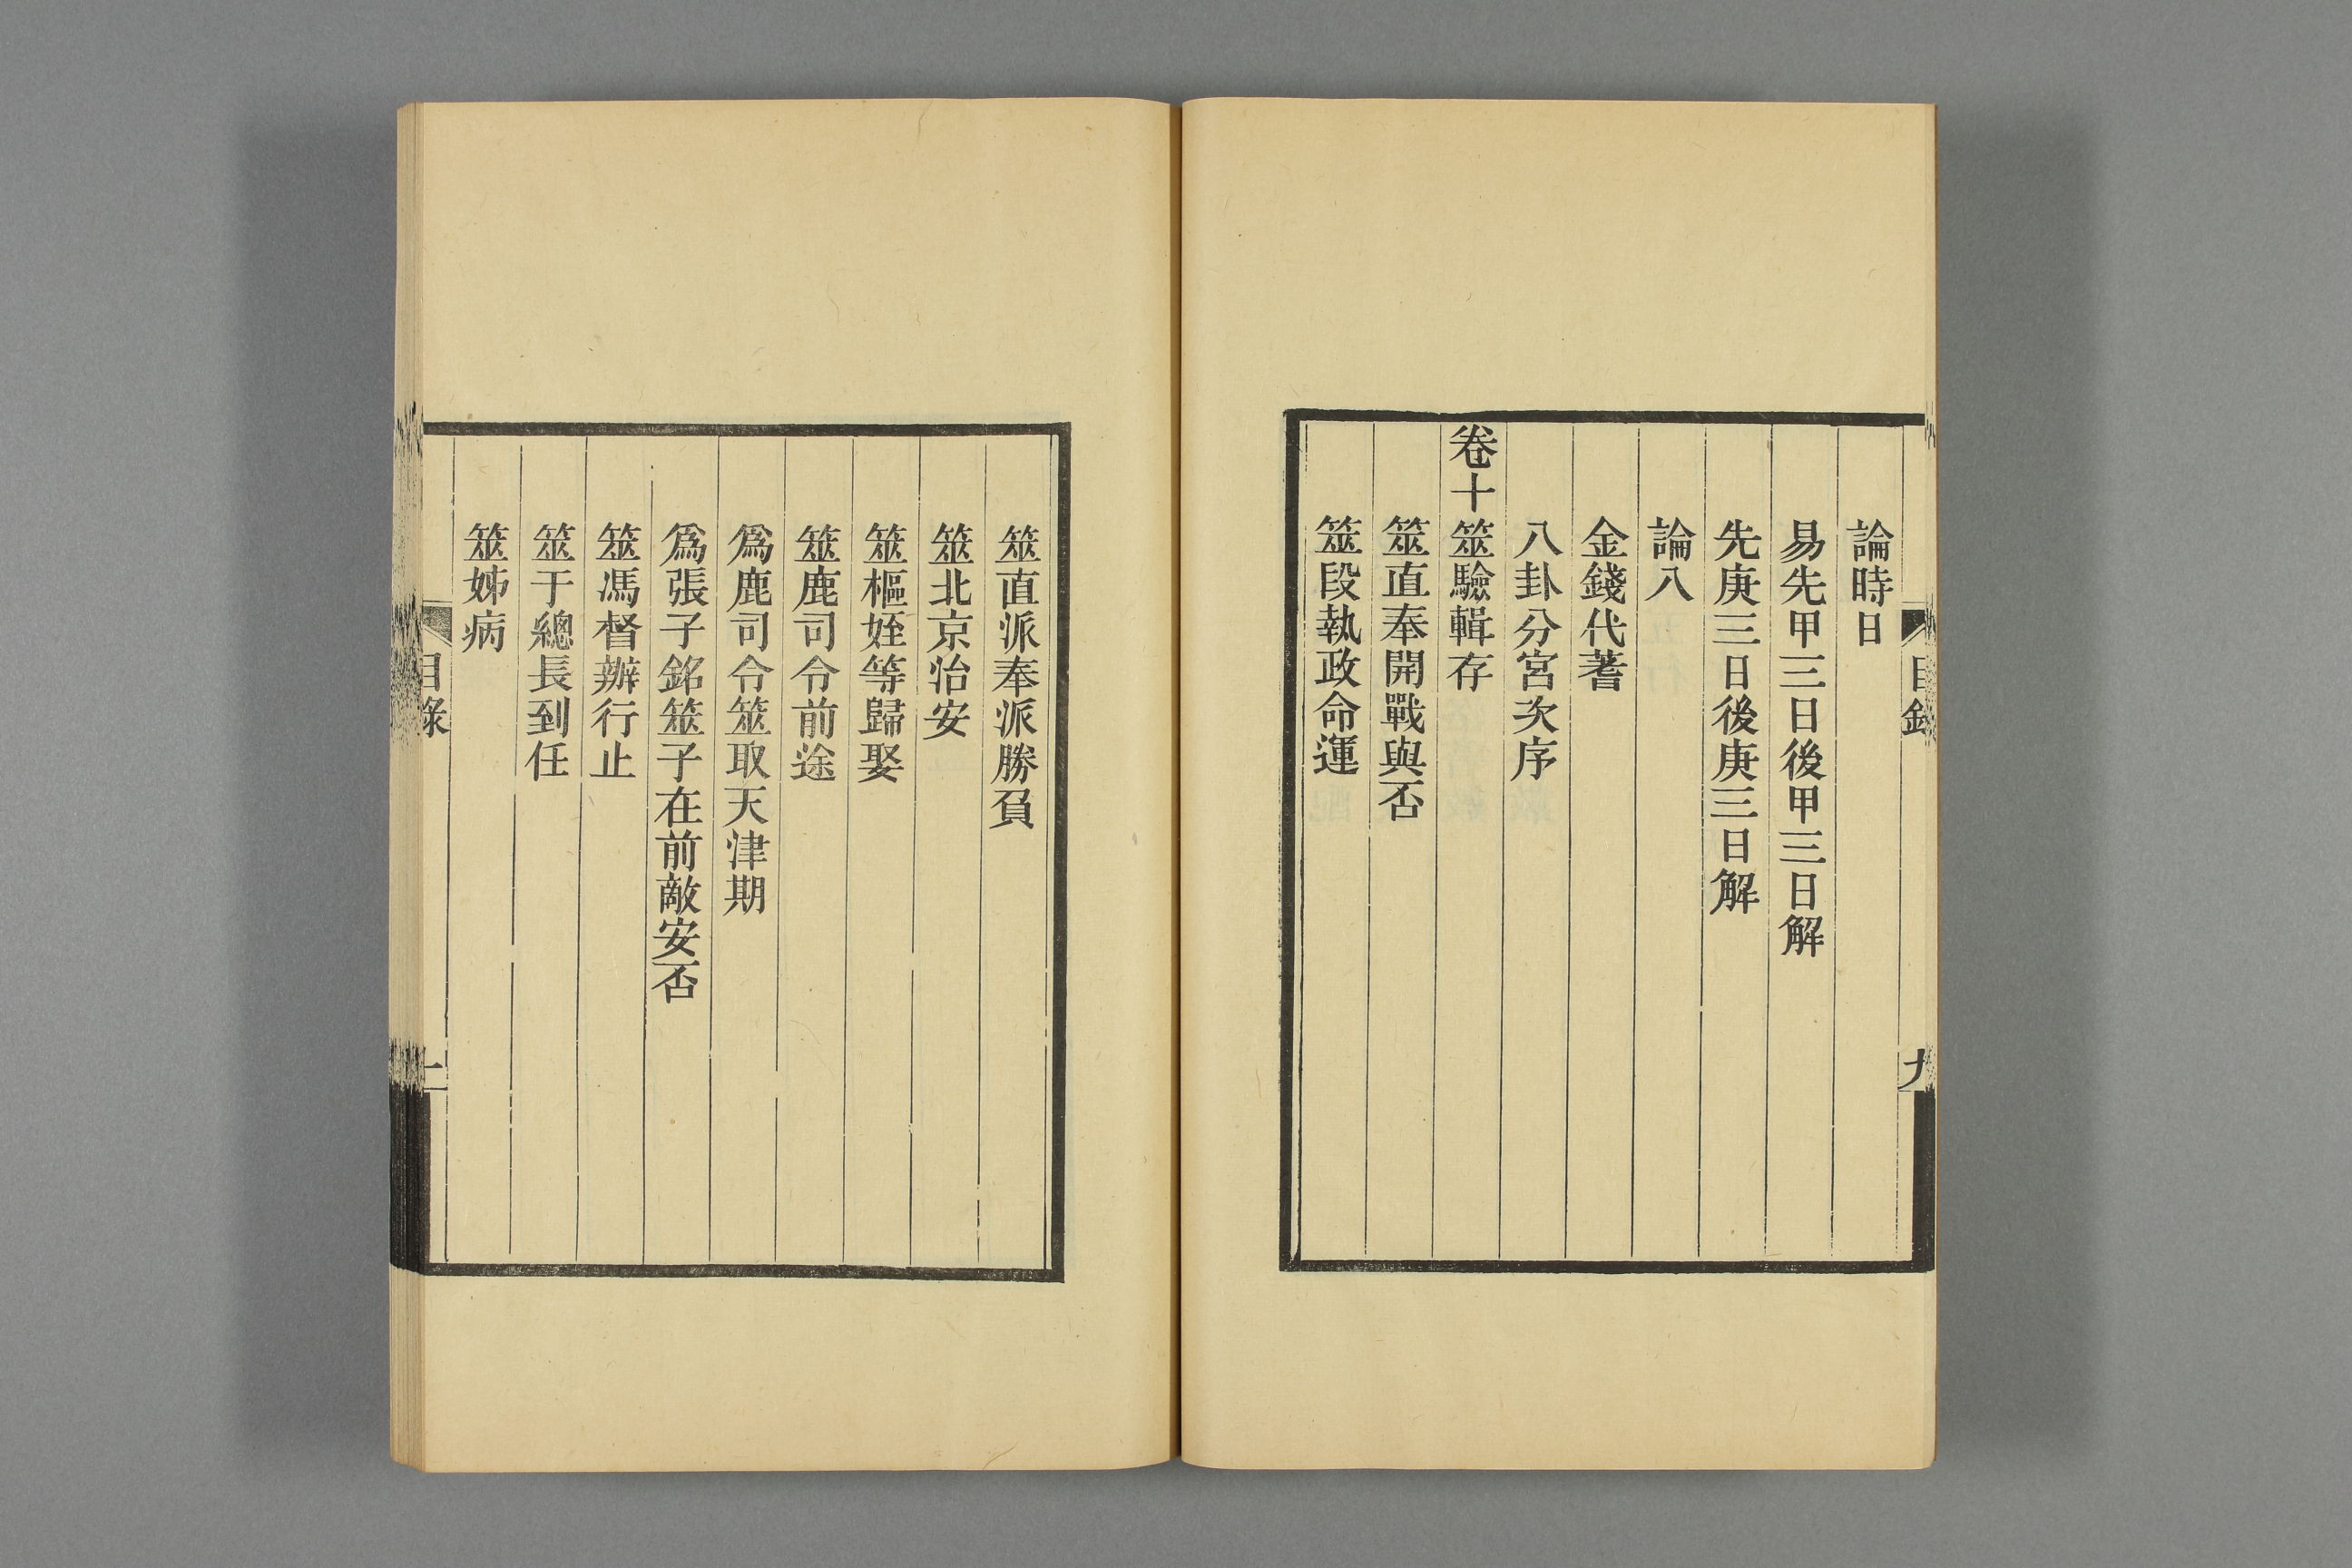 目錄
九
論時日
易先甲三日後甲三日解
先庚三日後庚三日解
論八
金錢代蓍
八卦分宮次序
卷十筮驗輯存
筮直奉開戰與否
筮段執政命運
筮直派奉派勝負
筮北京治安
筮樞姪等歸娶
筮鹿司令前途
爲鹿司令筮取天津期
爲張子銘筮子在前敵安否
筮馮督辦行止
筮于總長到任
筮姊病
目錄